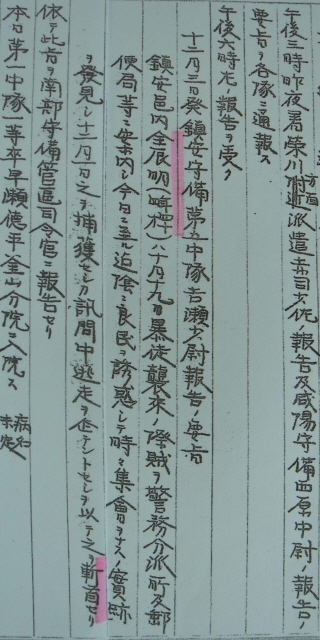 午後三時昨夜着榮川附近方面派遣赤司少佐ノ報告及咸陽守備西原中尉ノ報告ノ
要旨ヲ各隊ニ通報ス
午後六時左ノ報告ヲ受ク
十二月三日発鎮安守備第五中隊古瀬少尉報告ノ要旨
鎮安邑内全辰明 十月十九日暴徒襲来ノ際賊ヲ警務分派所及郵
便局等ニ案内シ今日ニ至ル迄陰ニ良民ヲ誘惑シテ時々集會ヲナスノ實跡
ヲ發見シ十二月一日之ヲ捕獲セシカ訊問中逃走ヲ企テントセシヲ以テ之ヲ斬首セリ
依テ此旨ヲ南部守備管區司令官ニ報告セリ
本日第一中隊一等卒早瀬德平釜山分院ニ入院ス 病名未定